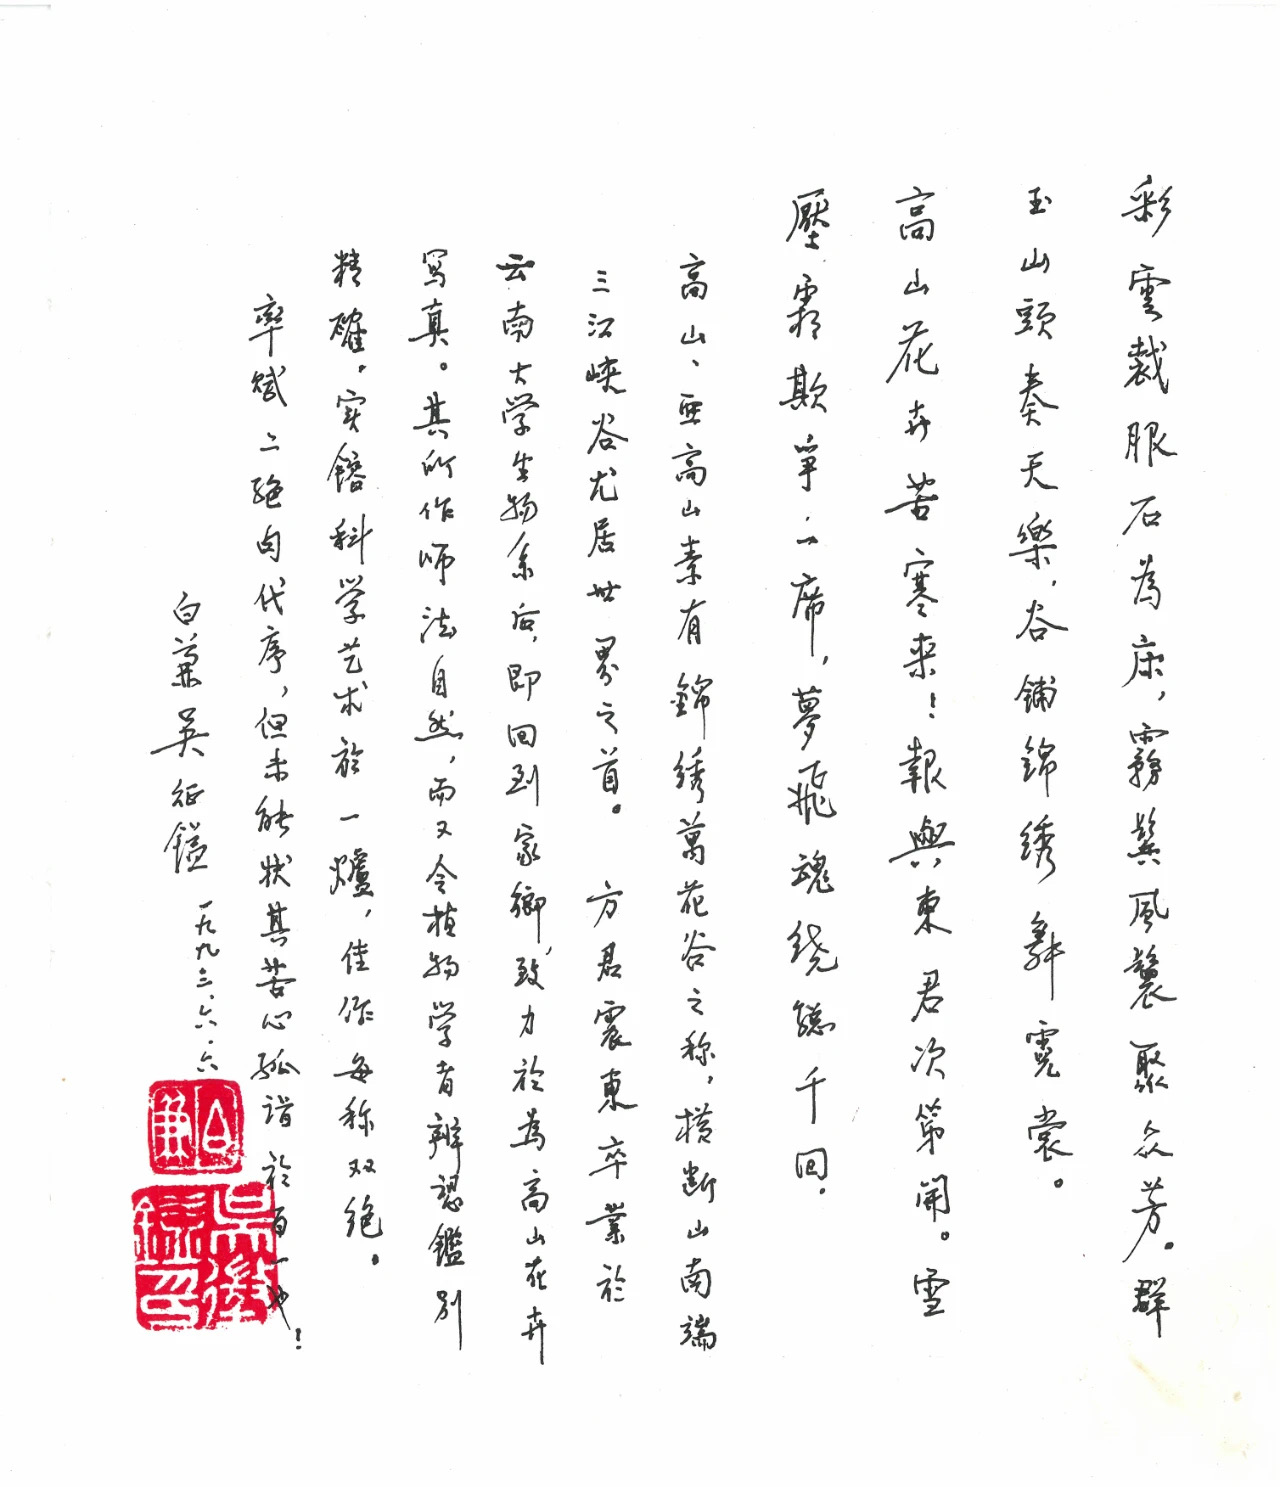 彩雲裁服石為床，霧鬓風鬟聚众芳。群
玉山頭奏天樂，谷鋪錦綉舞霓裳。
高山花卉苦寒來！報與東君次第開。雪
壓霜欺爭一席，夢飛魂绕聽千回。
高山、亚高山素有錦綉萬花谷之称，横断山南端
三江峡谷尤居世界之首。方君震東卒業於
云南大学生物系后，即回到家鄉，致力於為高山花卉
写真。其所作师法自然，而又令植物学者辨認鑑別
精確。实鎔科学艺术於一爐，佳作每称双绝。
率赋二绝句代序，但未能状其苦心孤诣於百一也！
白兼吴征鎰 一九九三.六.六
白兼
吳征鎰印